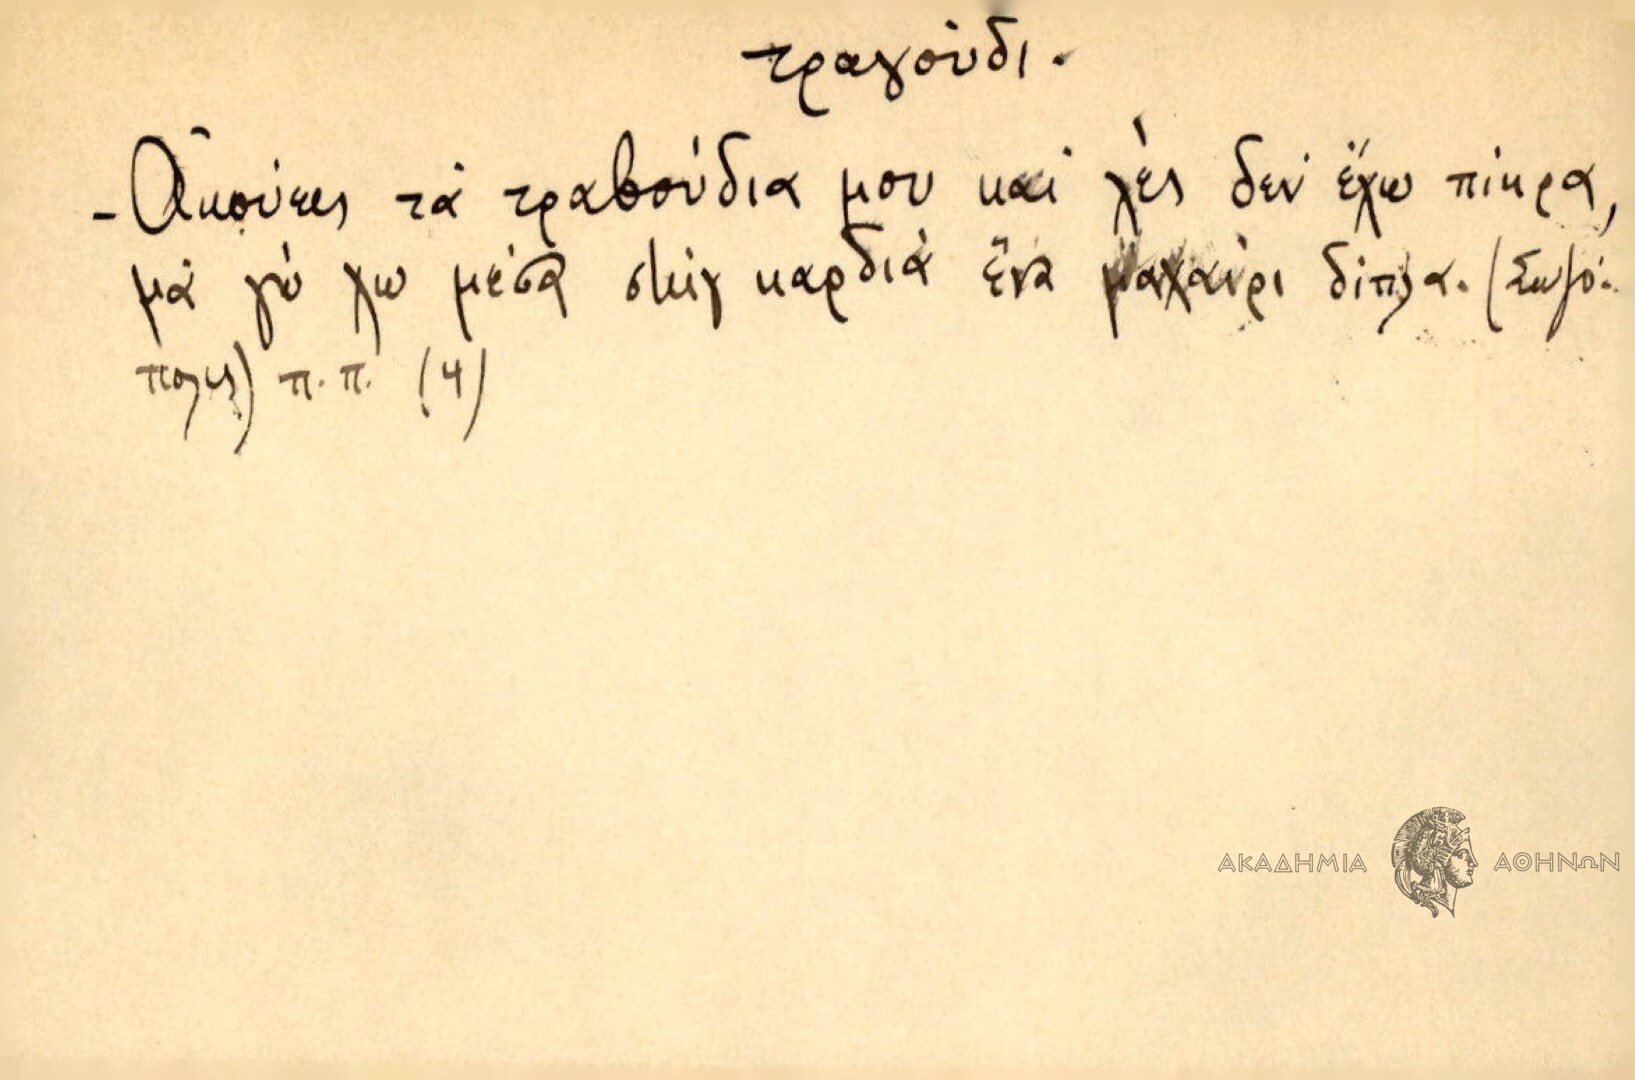 τραγούδι.
- Ἀκούεις τά τραβούδια μου καί λές δέν ἔχω πίκρα,
μά γώ χω μέσα στήν καρδιά ἕνα μαχαίρι δίπλα. (Σωζό-
πολις) π.π. (4)
ΑΚΑΔΗΜΙΑ ΑΘΗΝΩΝ